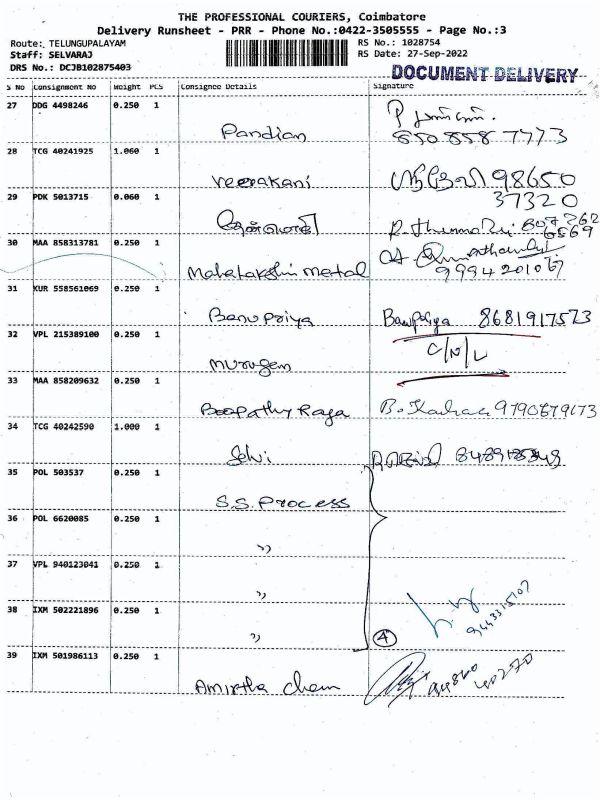 THE PROFESSIONAL COURIERS, Coimbatore
Delivery Runsheet - PRR - Phone No.:0422-3505555 - Page No.:3
Route: TELUNGUPALAYAM RS No.: 1028754
Staff: SELVARAJ RS Date: 27-Sep-2022
DRS No.: DCJB102875403
DOCUMENT DELIVERY
S No Consignment No Weight PCS Consignee Details Signature
27 DDG 4498246 0.250 1
Pandian 650 858 7773
28 TCG 40241925 1.060 1
Veerakani 98650
37320
29 PDK 5013715 0.060 1
30 MAA 858313781 0.250 1
Mahalakshmi metal
31 KUR 558561069 0.250 1
Banupriya Banupriya 8681917573
32 VPL 215389100 0.250 1
Murugan C/N/L
33 MAA 858209632 0.250 1
Boopathy Raja
34 TCG 40242590 1.000 1
Selvi
35 POL 503537 0.250 1
S.S. Process
36 POL 6620085 0.250 1
"
37 VPL 940123041 0.250 1
"
38 IXM 502221896 0.250 1
" 4
39 IXM 501986113 0.250 1
Amirtha Chem